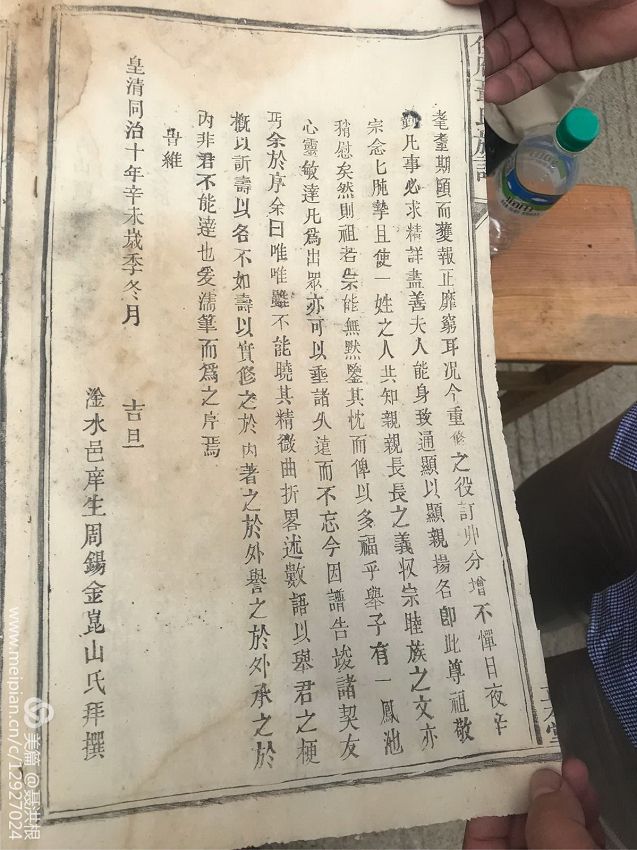 耄耋期頤而蘷報正靡窮耳況今重修之役訂卯分增不憚日夜辛
勤凡事必求精詳盡善夫人能身致通顯以顯親揚名卽此尊祖敬
宗念七肫摯且使一姓之人共知親親長長之義収宗睦族之文亦
稍慰矣然則祖若宗能無默鑒其忱而俾以多福乎舉子有一鳳池
心靈敏達凡為出眾亦可以垂諸久遠而不忘今因譜告竣諸契友
丐余於序余曰唯唯雖不能曉其精微曲折畧述數語以舉君之梗
概以訢壽以名不如壽以實修之於內著之於外譽之於外承之於
內非君不能達也爰濡筆而為之序焉
旹維
皇清同治十年辛未歲季冬月 吉旦
淦水邑庠生周錫金崑山氏拜撰
氏族譜
美篇@聂洪根
www.meipian.cn/c/12927024